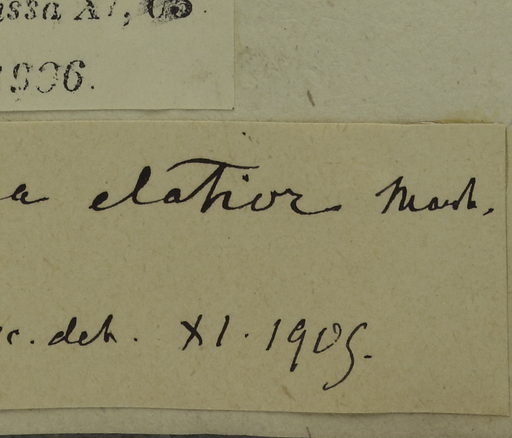 ussa XI, 05.
1906.
a elatior Marsh.
c. det. XI. 1905.